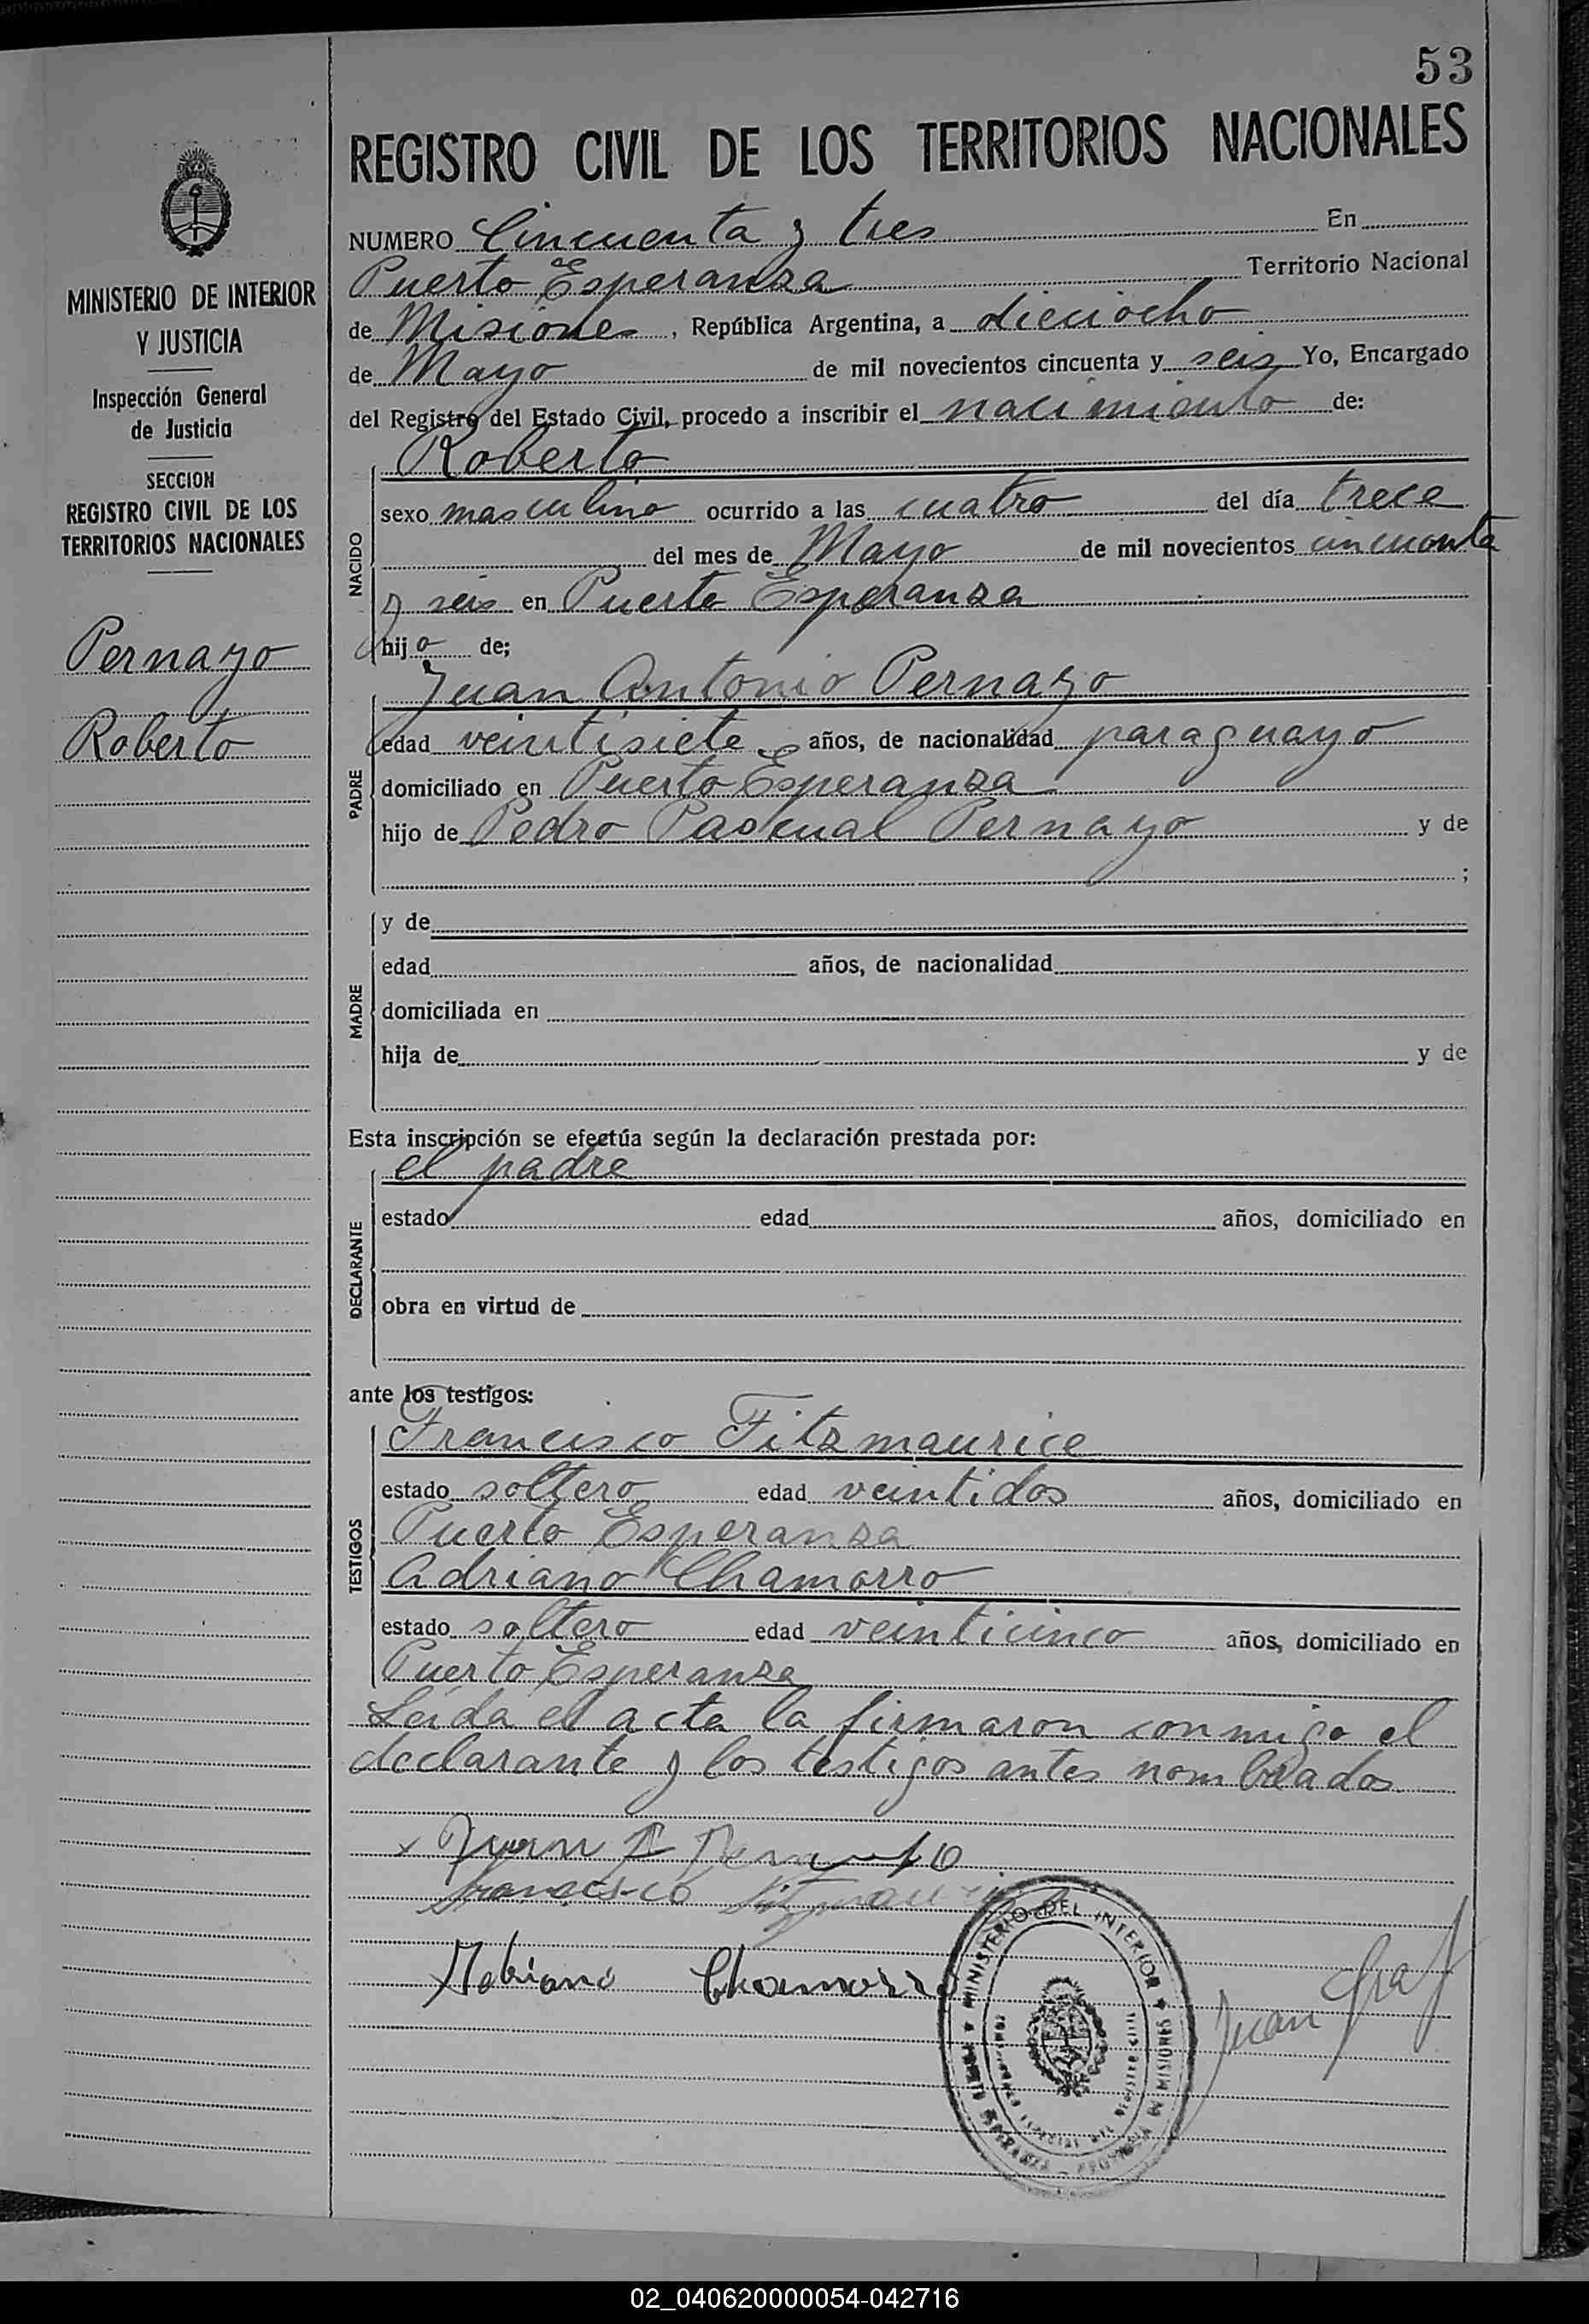 53
REGISTRO CIVIL DE LOS TERRITORIOS NACIONALES
MINISTERIO DE INTERIOR
Y JUSTICIA
Inspección General
de Justicia
SECCION
REGISTRO CIVIL DE LOS
TERRITORIOS NACIONALES
Pernayo
Roberto
NUMERO Cincuenta y tres En
Puerto Esperanza Territorio Nacional
de Misiones, República Argentina, a dieciocho
de Mayo de mil novecientos cincuenta y seis Yo, Encargado
del Registro del Estado Civil, procedo a inscribir el nacimiento de:
NACIDO
Roberto
sexo masculino ocurrido a las cuatro del día trece
del mes de Mayo de mil novecientos cincuenta
y seis en Puerto Esperanza
hijo de;
PADRE
Juan Antonio Pernayo
edad veintisiete años, de nacionalidad paraguayo
domiciliado en Puerto Esperanza
hijo de Pedro Pascual Pernayo y de
;
MADRE
y de
edad años, de nacionalidad
domiciliada en
hija de y de
Esta inscripción se efectúa según la declaración prestada por:
DECLARANTE
el padre
estado edad años, domiciliado en
obra en virtud de
ante los testigos:
TESTIGOS
Francisco Fitzmaurice
estado soltero edad veintidos años, domiciliado en
Puerto Esperanza
Adriano Chamorro
estado soltero edad veinticinco años, domiciliado en
Puerto Esperanza
Leida el acta la firmaron conmigo el
declarante y los testigos antes nombrados
x Juan A Pernayo
Francisco Fitzmaurice
Adriano Chamorro
MINISTERIO DEL INTERIOR
MISIONES
Juan Graf
02_040620000054-042716